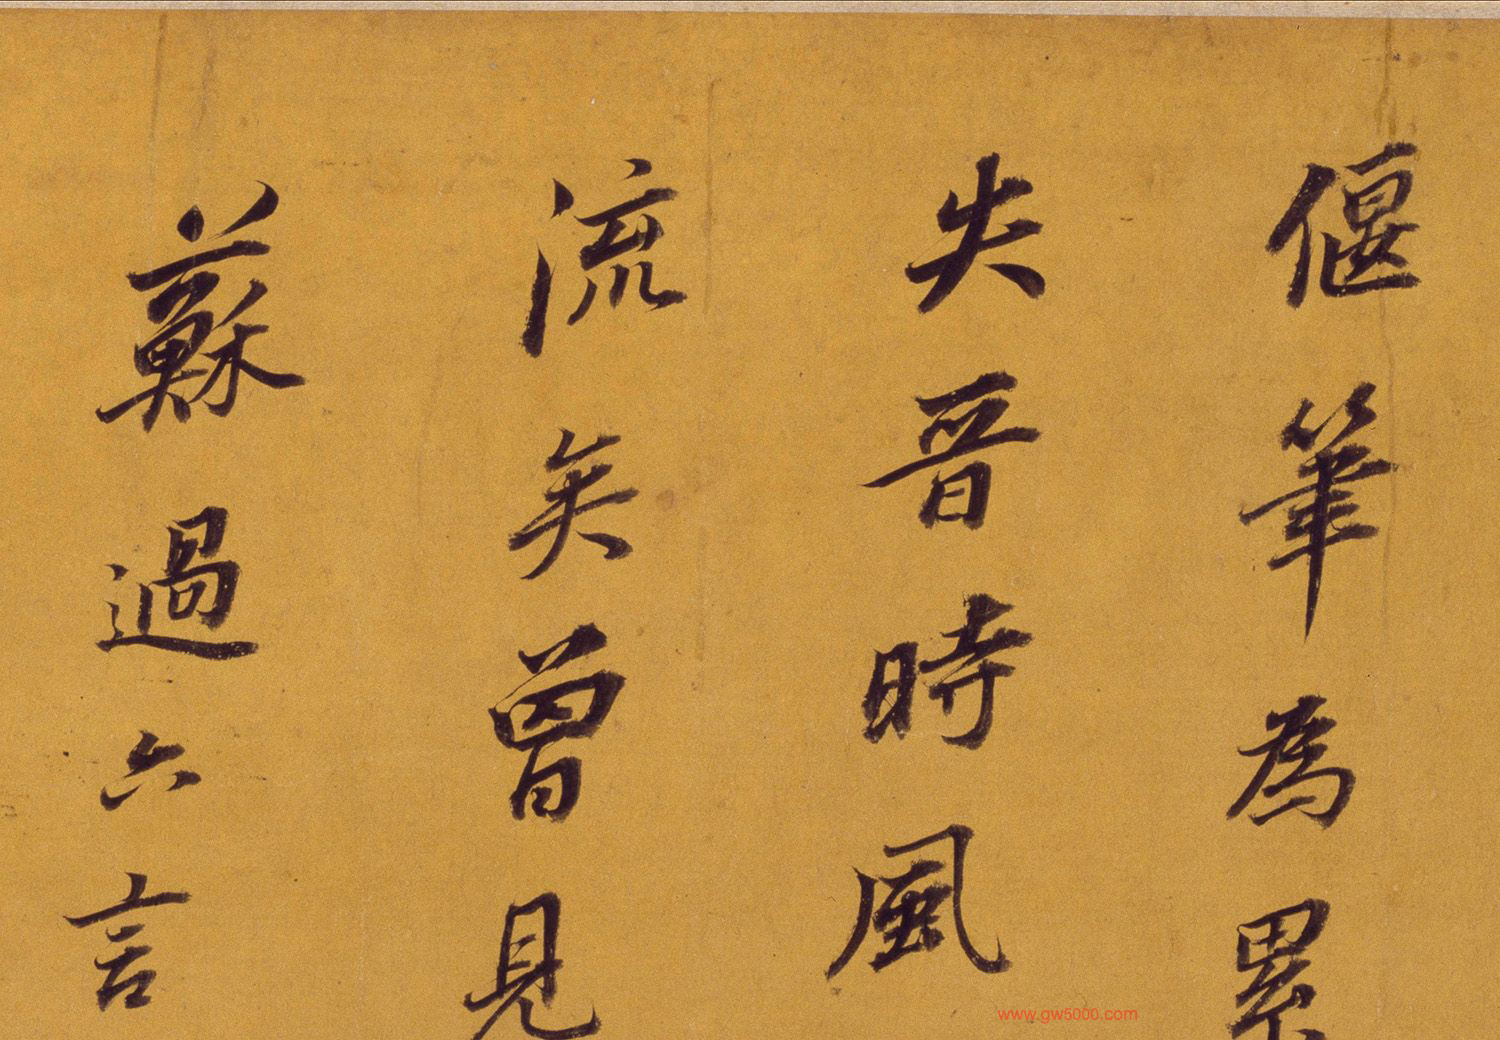 偃筆為累
失晉時風
流矣曾見
蘇過六言
www.gw5000.com